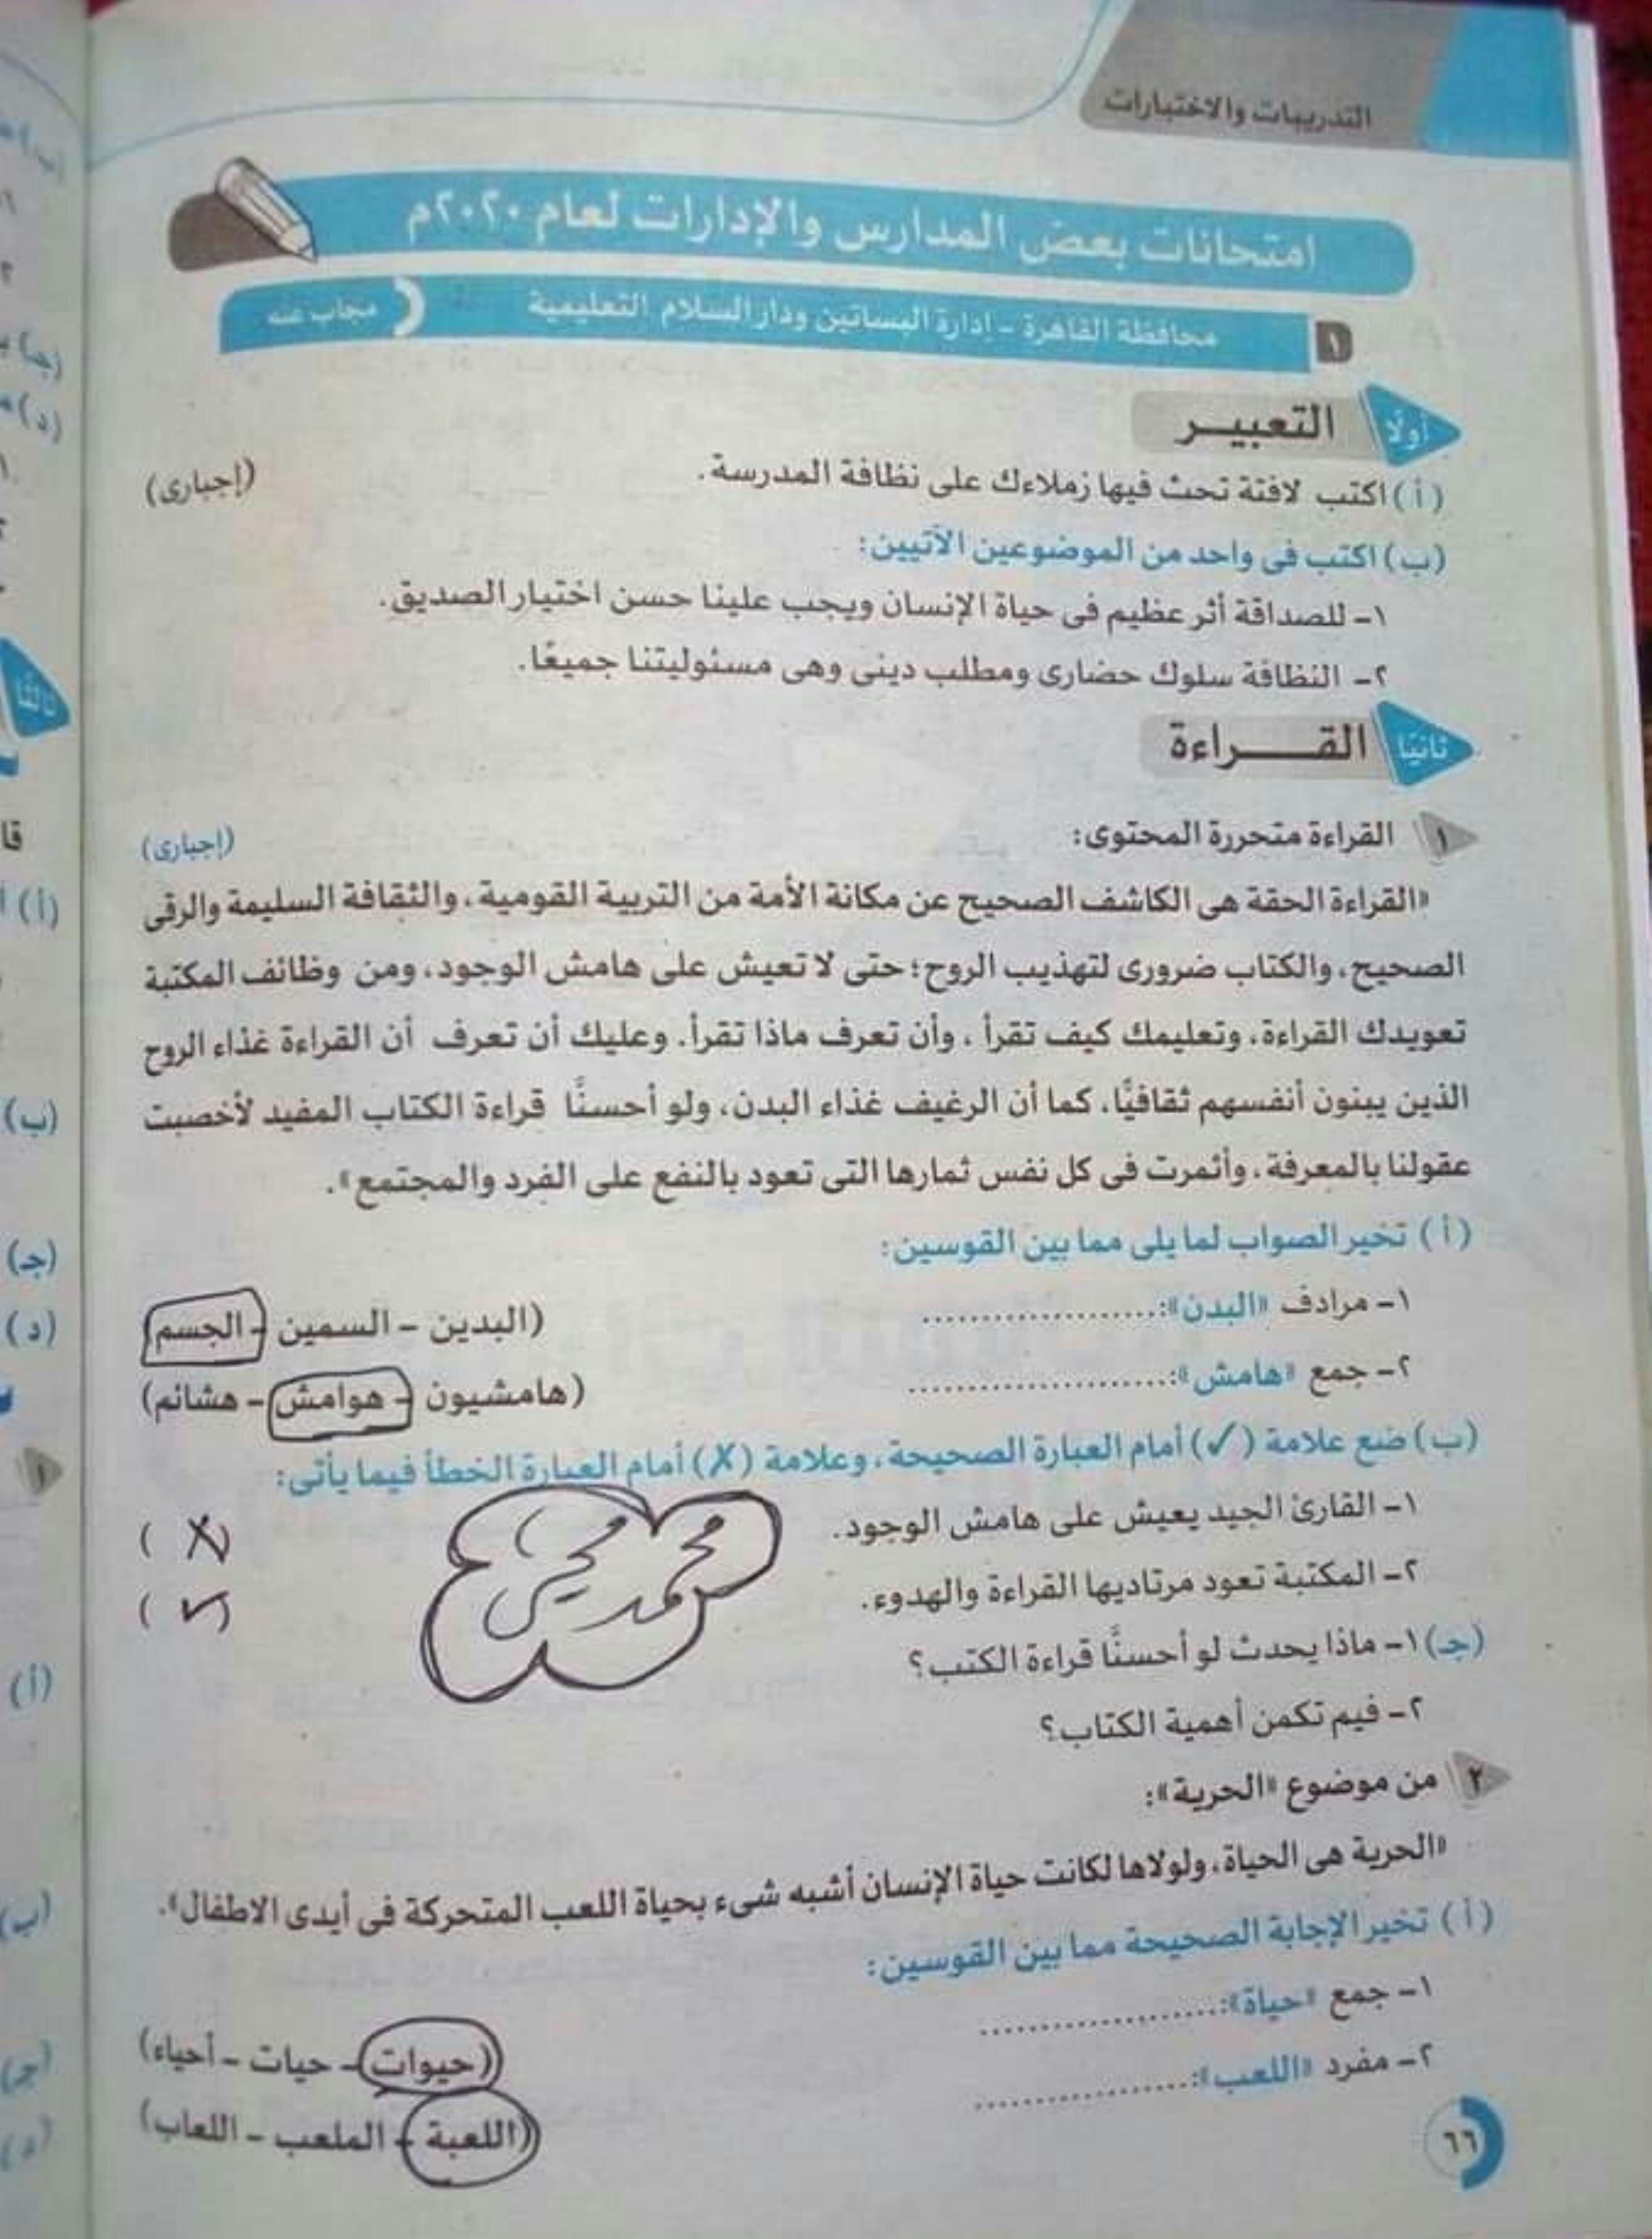 التدريبات والاختبارات
امتحانات بعض المدارس والإدارات لعام ٢٠٢٠م
١ محافظة القاهرة – إدارة البساتين ودار السلام التعليمية مجاب عنه
أولًا التعبير
(أ) اكتب لافتة تحث فيها زملاءك على نظافة المدرسة. (إجبارى)
(ب) اكتب فى واحد من الموضوعين الآتيين:
١– للصداقة أثر عظيم فى حياة الإنسان ويجب علينا حسن اختيار الصديق.
٢– النظافة سلوك حضارى ومطلب دينى وهى مسئوليتنا جميعًا.
ثانيًا القراءة
١ القراءة متحررة المحتوى: (إجبارى)
«القراءة الحقة هى الكاشف الصحيح عن مكانة الأمة من التربية القومية، والثقافة السليمة والرقى
الصحيح، والكتاب ضرورى لتهذيب الروح؛ حتى لا تعيش على هامش الوجود، ومن وظائف المكتبة
تعويدك القراءة، وتعليمك كيف تقرأ، وأن تعرف ماذا تقرأ. وعليك أن تعرف أن القراءة غذاء الروح
الذين يبنون أنفسهم ثقافيًّا، كما أن الرغيف غذاء البدن، ولو أحسنَّا قراءة الكتاب المفيد لأخصبت
عقولنا بالمعرفة، وأثمرت فى كل نفس ثمارها التى تعود بالنفع على الفرد والمجتمع».
(أ) تخير الصواب لما يلى مما بين القوسين:
١– مرادف «البدن»: .................... (البدين – السمين – الجسم)
٢– جمع «هامش»: .................... (هامشيون – هوامش – هشائم)
(ب) ضع علامة (✓) أمام العبارة الصحيحة، وعلامة (✗) أمام العبارة الخطأ فيما يأتى:
١– القارئ الجيد يعيش على هامش الوجود. (✗)
٢– المكتبة تعود مرتاديها القراءة والهدوء. (✓)
محمد يحيى
(جـ) ١– ماذا يحدث لو أحسنَّا قراءة الكتب؟
٢– فيم تكمن أهمية الكتاب؟
٢ من موضوع «الحرية»:
«الحرية هى الحياة، ولولاها لكانت حياة الإنسان أشبه شىء بحياة اللعب المتحركة فى أيدى الاطفال».
(أ) تخير الإجابة الصحيحة مما بين القوسين:
١– جمع «حياة»: .................... (حيوات – حيات – أحياء)
٢– مفرد «اللعب»: .................... (اللعبة – الملعب – اللعاب)
٦٦